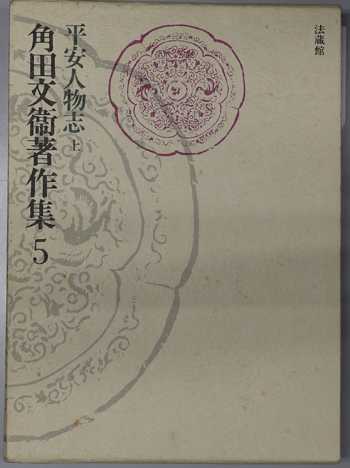 法蔵館
平安人物志 上
角田文衞著作集 5